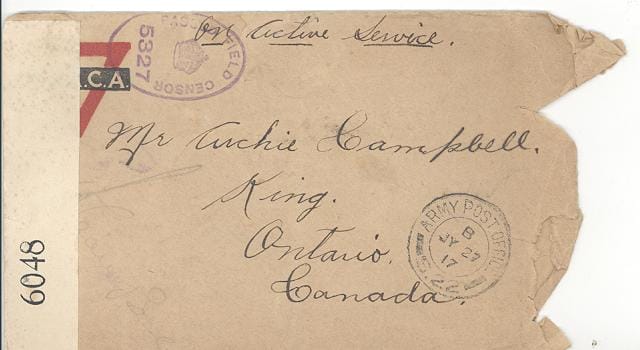 On Active Service.
PASSED FIELD CENSOR
5327
.C.A.
Mr Archie Campbell.
King.
Ontario.
Canada.
ARMY POST OFFICE
B
JY 27
17
S.22
6048